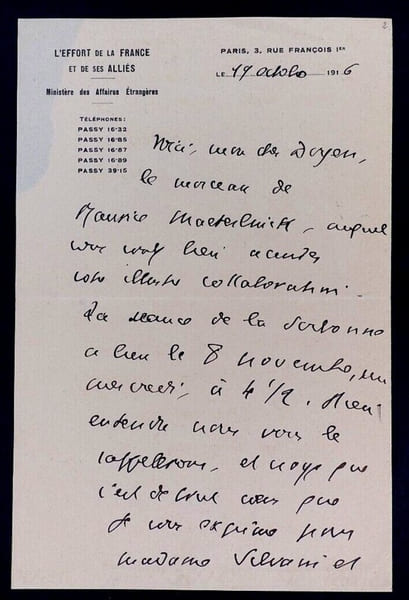 2
L'EFFORT DE LA FRANCE
ET DE SES ALLIÉS
Ministère des Affaires Étrangères
TÉLÉPHONES:
PASSY 16·32
PASSY 16·85
PASSY 16·87
PASSY 16·89
PASSY 39·15
PARIS, 3, RUE FRANÇOIS Iᴱᴿ
LE 19 octobre 1916
Voici, mon cher Doyen,
le morceau de
Maurice Maeterlinck, auquel
vous voulez bien accorder
votre illustre collaboration.
La séance de la Sorbonne
a lieu le 8 novembre, un
mercredi, à 4 1/2. Bien
entendu nous vous le
rappellerons, et croyez que
c'est de tout cœur que
je vous exprime pour
madame Silvain et